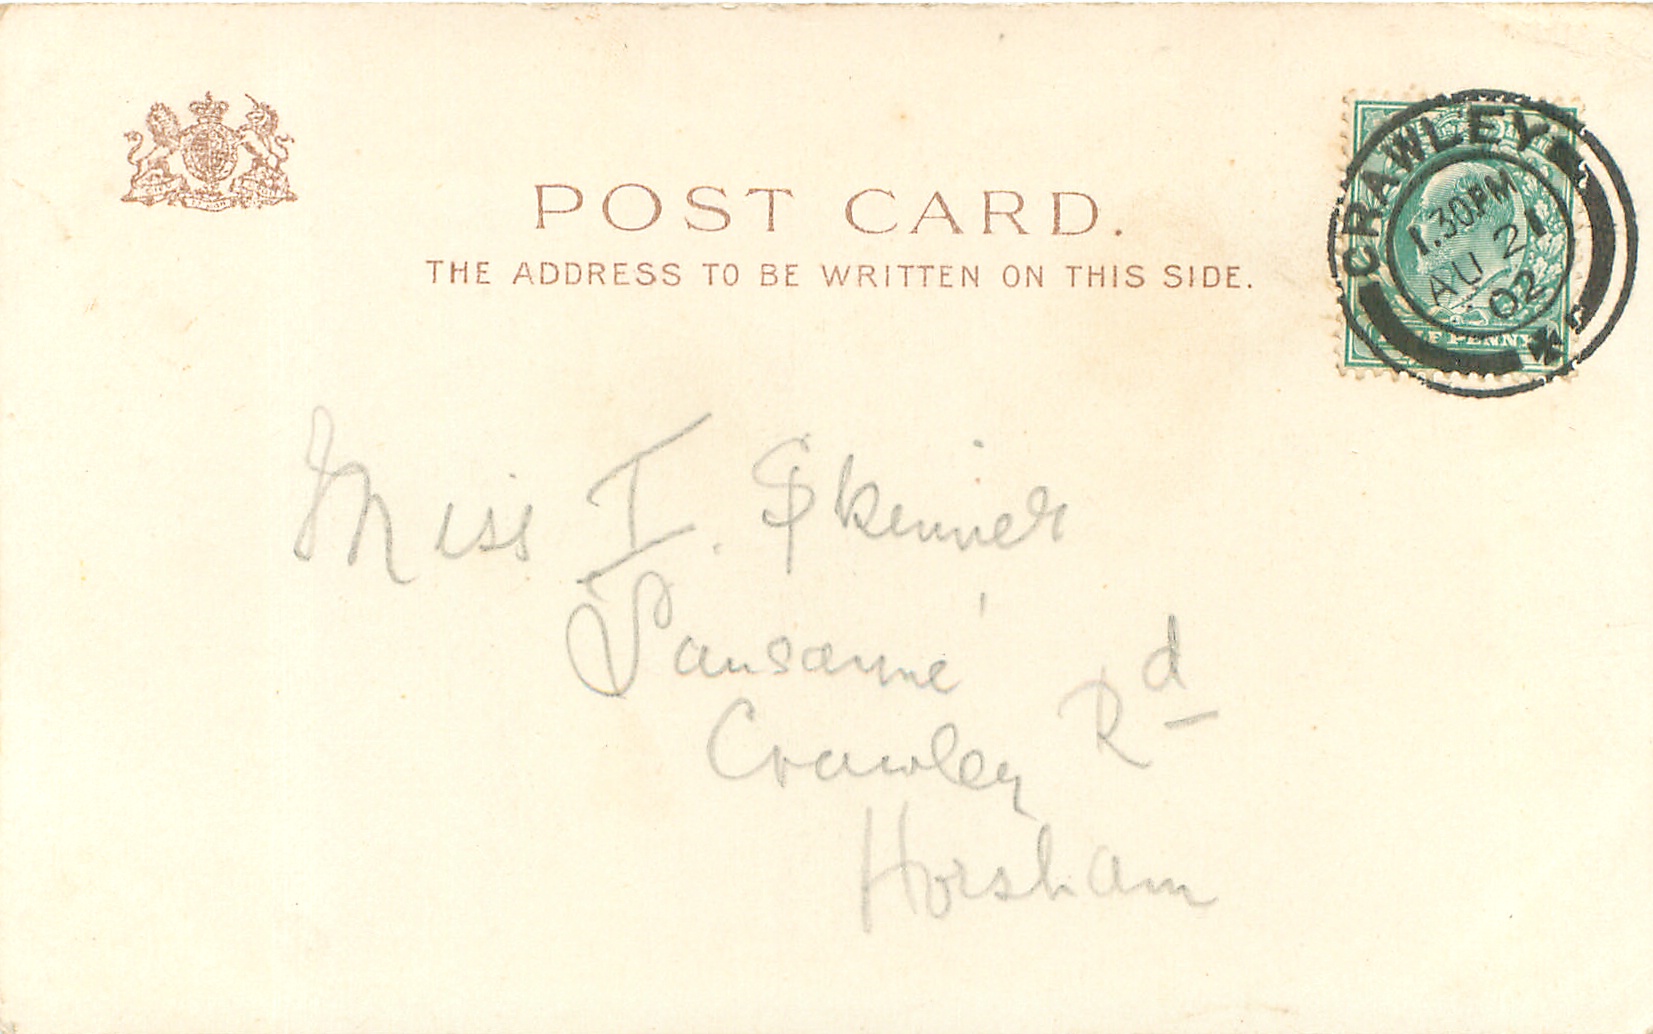 POST CARD.
THE ADDRESS TO BE WRITTEN ON THIS SIDE.
CRAWLEY
1.30PM
AU 21
02
PENNY
Miss I. Skinner
Lausanne
Crawley Rd
Horsham